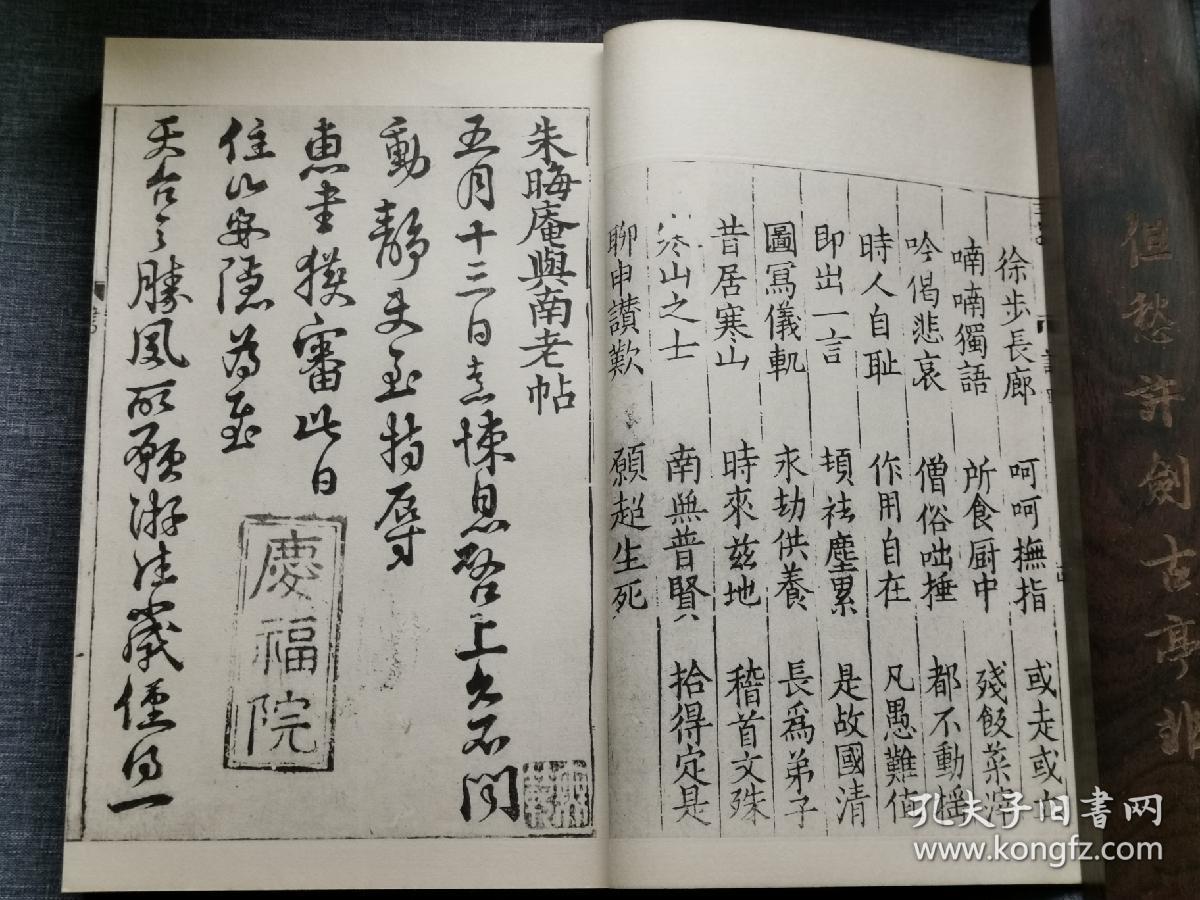 徐步長廊 呵呵撫指 或走或
喃喃獨語 所食厨中 殘飯菜滓
吟偈悲哀 僧俗咄捶 都不動搖
時人自耻 作用自在 凡愚難值
即出一言 頓祛塵累 是故國清
圖寫儀軌 永劫供養 長爲弟子
昔居寒山 時來兹地 稽首文殊
寒山之士 南無普賢 拾得定是
聊申讃歎 願超生死
朱晦庵與南老帖
五月十三日熹悚息啓上久不聞
動靜夫至特辱
惠書獲審比日
住山安隱爲慰
天台之勝夙所願游往歲僅得一
慶福院
但愁許劍古亭非
孔夫子旧书网
www.kongfz.com